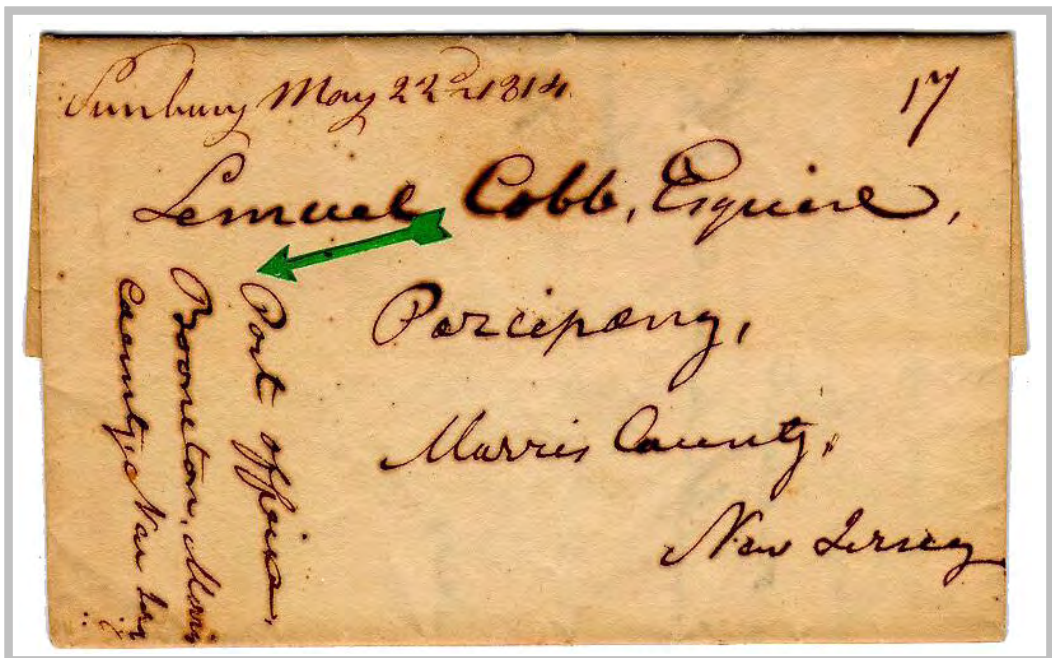 Sunbury May 22d 1814
17
Lemuel Cobb, Esquire,
Parcipany,
Morris County,
New Jersey
Post office,
Booneton, Morris
County, New Jery